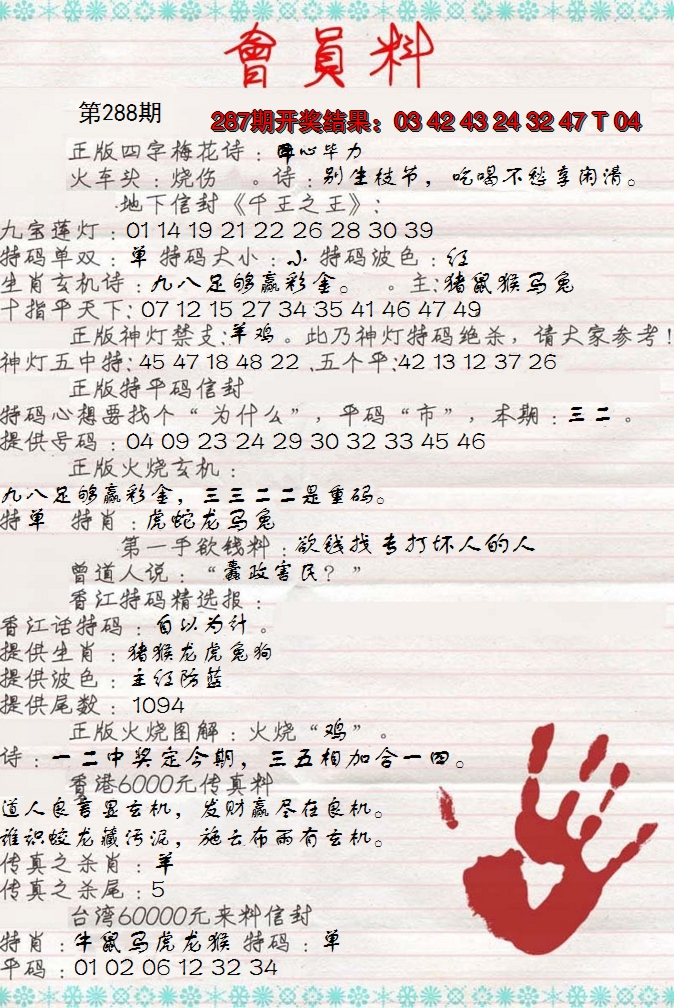 會員料
第288期
287期开奖结果：03 42 43 24 32 47 T 04
正版四字梅花诗：心毕力
火车头：烧伤 。诗：别生枝节，吃喝不愁享闲滑。
地下信封《千王之王》：
九宝莲灯：01 14 19 21 22 26 28 30 39
特码单双：单 特码大小：小 特码波色：红
生肖玄机诗：九八足够赢彩金。 。主:猪鼠猴马兔
十指平天下: 07 12 15 27 34 35 41 46 47 49
正版神灯禁支:羊鸡。此乃神灯特码绝杀，请大家参考!
神灯五中特: 45 47 18 48 22 .五个平:42 13 12 37 26
正版特平码信封
特码心想要找个“为什么”，平码“市”，本期：三二。
提供号码：04 09 23 24 29 30 32 33 45 46
正版火烧玄机：
九八足够赢彩金，三三二二是重码。
特单 特肖：虎蛇龙马兔
第一手欲钱料：欲钱找专打坏人的人
曾道人说：“蠹政害民？”
香江特码精选报：
香江话特码：自以为计。
提供生肖：猪猴龙虎兔狗
提供波色：主红防蓝
提供尾数：1094
正版火烧图解：火烧“鸡”。
诗：一二中奖定今期，三五相加合一四。
香港6000元传真料
道人良言显玄机，发财赢尽在良机。
谁识蛟龙藏污泥，施云布雨有玄机。
传真之杀肖：羊
传真之杀尾：5
台湾60000元来料信封
特肖：牛鼠马虎龙猴 特码：单
平码：01 02 06 12 32 34